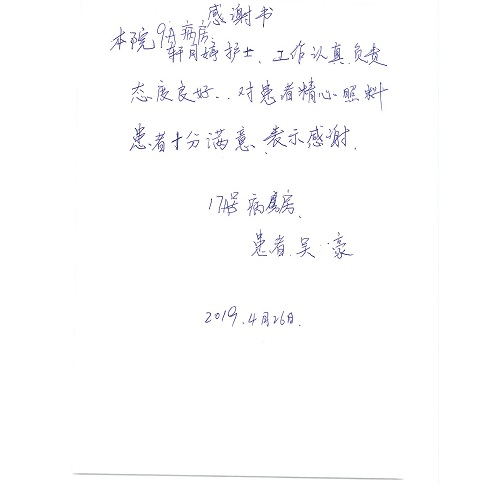 感谢书
本院9A病房
轩月婷护士、工作认真负责
态度良好..对患者精心照料
患者十分满意、表示感谢.
17A号病房、
患者、吴··豪
2019.4月26日.